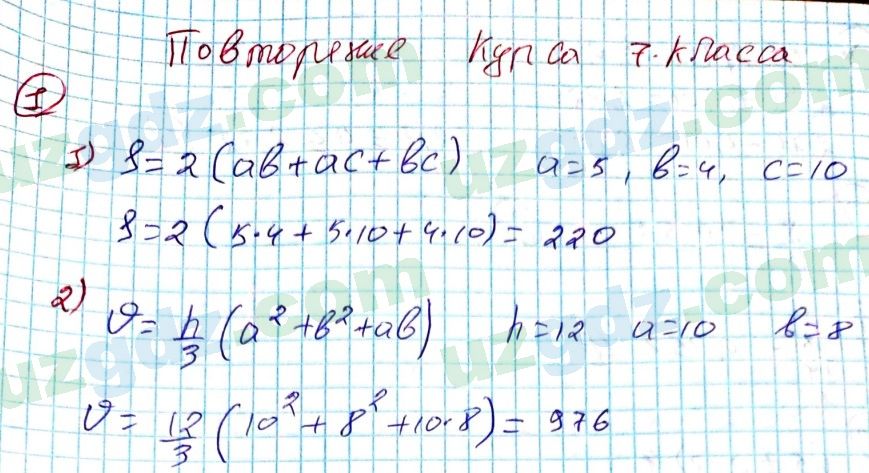 Повторение курса 7. класса
1
1) S=2(ab+ac+bc) a=5, b=4, c=10
S=2(5·4+5·10+4·10)=220
2) V=h/3(a²+b²+ab) h=12 a=10 b=8
V=12/3(10²+8²+10·8)=976
uzgdz.com